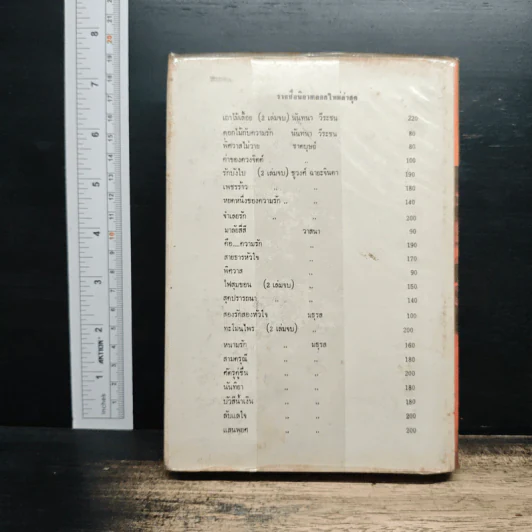 รายชื่อนิยายออกใหม่ล่าสุด
เถาวัลย์เลื้อย (2 เล่มจบ) นันทนา วีระชน 220
ดอกไม้กับความรัก นันทนา วีระชน 80
พิศวาสไม่วาย ชาตบุษย์ 80
ค่าของดวงจิตต์ ,, 100
รักบังใบ (2 เล่มจบ) ชูวงศ์ ฉายะจินดา 190
เพชรร้าว ,, ,, 180
หยดหนึ่งของความรัก ,, ,, 140
จำเลยรัก ,, ,, 200
มาลัยสีสี วาสนา 90
คือ...ความรัก ,, 190
สายธารหัวใจ ,, 170
พิศวาส ,, 90
ไฟสุมขอน (2 เล่มจบ) ,, 150
สุดปรารถนา ,, ,, 140
สองรักสองหัวใจ นธุรส 100
ทะโมนไพร (2 เล่มจบ) ,, 200
หนามรัก ,, นธุรส 160
สามดรุณี ,, ,, 180
ศัตรูคู่ชื่น ,, ,, 200
นันทิยา ,, ,, 180
ปวีสีน้ำเงิน ,, ,, 180
ลับแลใจ ,, ,, 200
แสนพยศ ,, ,, 200
8
7
6
5
4
3
2
1
inches